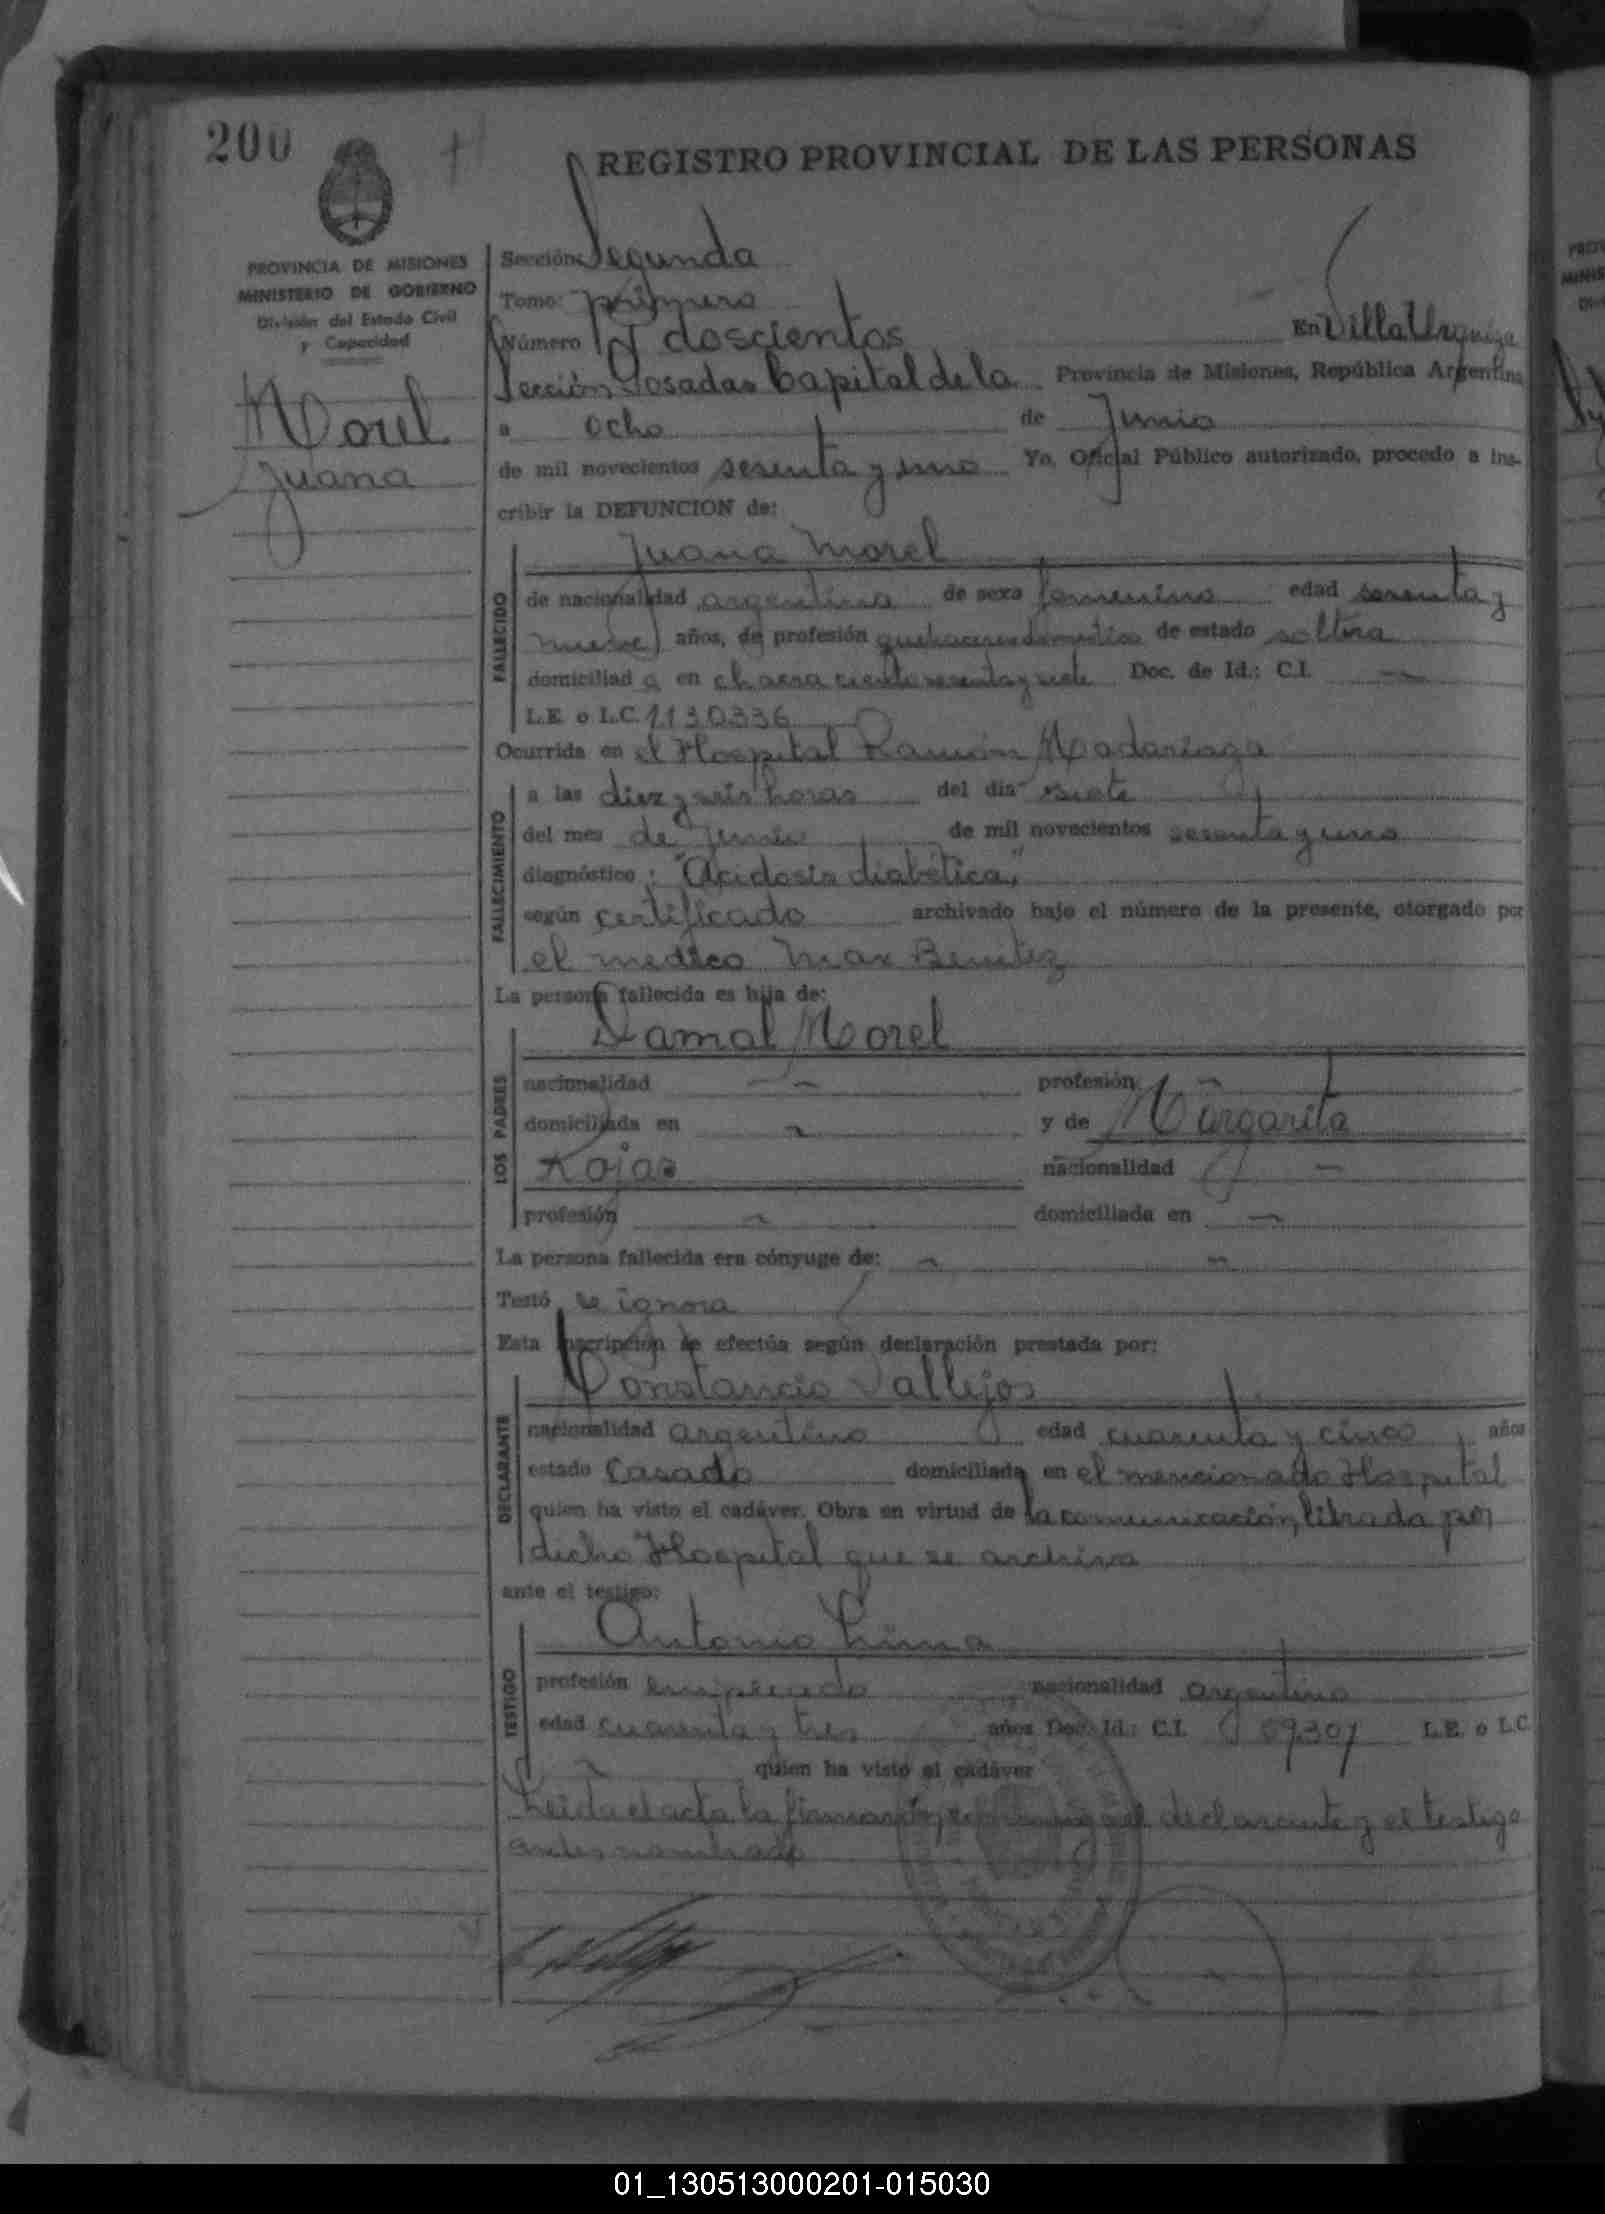 200
REGISTRO PROVINCIAL DE LAS PERSONAS
PROVINCIA DE MISIONES
MINISTERIO DE GOBIERNO
División del Estado Civil
y Capacidad
Morel
Juana
Sección: Segunda
Tomo: primero
Número doscientos En Villa Urquiza
Sección Posadas Capital de la Provincia de Misiones, República Argentina
a ocho de Junio
de mil novecientos sesenta y uno Yo, Oficial Público autorizado, procedo a ins-
cribir la DEFUNCION de:
Juana Morel
FALLECIDO
de nacionalidad argentina de sexo femenino edad sesenta y
nueve años, de profesión quehaceres domésticos de estado soltera
domiciliada en chacra ciento sesenta y siete Doc. de Id.: C.I. —
L.E. o L.C. 1130336
Ocurrida en el Hospital Ramón Madariaga
FALLECIMIENTO
a las diez y seis horas del día siete
del mes de Junio de mil novecientos sesenta y uno
diagnóstico: "Acidosis diabética"
según certificado archivado bajo el número de la presente, otorgado por
el medico Max Benitez
La persona fallecida es hija de:
LOS PADRES
Damal Morel
nacionalidad — profesión —
domiciliada en — y de Margarita
Rojas nacionalidad —
profesión — domiciliada en —
La persona fallecida era cónyuge de: — —
Testó se ignora
Esta inscripción se efectúa según declaración prestada por:
DECLARANTE
Constancio Vallejos
nacionalidad argentino edad cuarenta y cinco años
estado Casado domiciliada en el mencionado Hospital
quien ha visto el cadáver. Obra en virtud de la comunicación, librada por
dicho Hospital que se archiva
ante el testigo:
TESTIGO
Antonio Lima
profesión empleado nacionalidad argentino
edad cuarenta y tres años Doc. Id.: C.I. 69307 L.E. o L.C.
— quien ha visto el cadáver
Leida el acta la firman el declarante y el testigo
antes nombrado
01_130513000201-015030